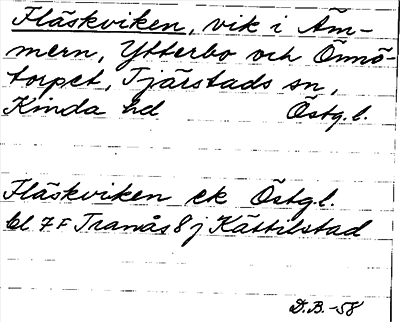 Fläskviken, vik i Äm-
mern, Ytterbo och Önnö-
torpet, Tjärstads sn,
Kinda hd Östg.l.
Fläskviken ek Östg.l.
bl 7F Tranås 8j Kättilstad
D.B.-58